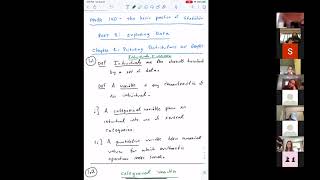 MATH 140 - The basic practice of Statistics
PART I: Exploring Data
Chapter 1: Picturing Distributions with Graphs
Individuals & variables
1.1 Def Individuals are the objects described by a set of data.
Def A variable is any characteristic of an individual.
i.] A categorical variable places an individual into one of several categories.
ii.] A quantitative variable takes numerical values for which arithmetic operations make sense.
1.2 Categorical variables
S